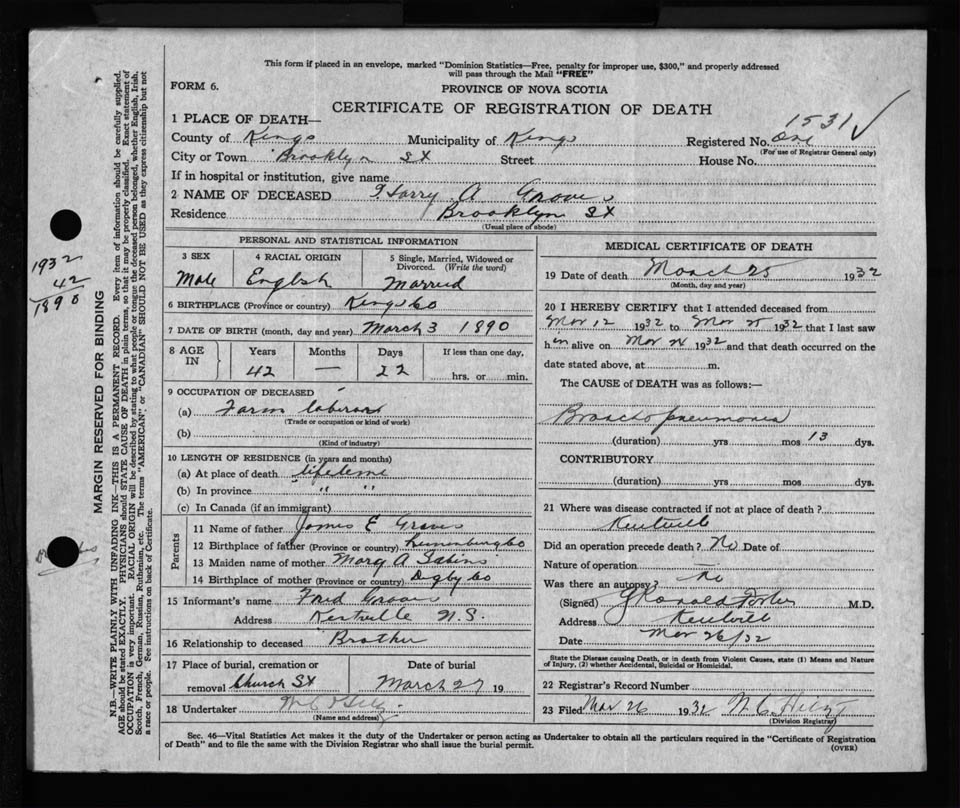 This form if placed in an envelope, marked "Dominion Statistics—Free, penalty for improper use, $300," and properly addressed
will pass through the Mail "FREE"
FORM 6.
PROVINCE OF NOVA SCOTIA
CERTIFICATE OF REGISTRATION OF DEATH
1531 ✓
1 PLACE OF DEATH—
County of Kings Municipality of Kings Registered No. One
(For use of Registrar General only)
City or Town Brooklyn St Street House No.
If in hospital or institution, give name
2 NAME OF DECEASED Harry A Graves
Residence Brooklyn St
(Usual place of abode)
PERSONAL AND STATISTICAL INFORMATION
3 SEX 4 RACIAL ORIGIN 5 Single, Married, Widowed or
Divorced. (Write the word)
Male English Married
6 BIRTHPLACE (Province or country) Kings Co
7 DATE OF BIRTH (month, day and year) March 3 1890
8 AGE IN Years Months Days If less than one day,
42 — 22 hrs. or min.
9 OCCUPATION OF DECEASED
(a) Farm laborer
(Trade or occupation or kind of work)
(b)
(Kind of industry)
10 LENGTH OF RESIDENCE (in years and months)
(a) At place of death lifetime
(b) In province " "
(c) In Canada (if an immigrant)
Parents
11 Name of father James E Graves
12 Birthplace of father (Province or country) Lunenburg Co
13 Maiden name of mother Mary A Sabins
14 Birthplace of mother (Province or country) Digby Co
15 Informant's name Fred Graves
Address Kentville N.S.
16 Relationship to deceased Brother
17 Place of burial, cremation or Date of burial
removal Church St March 27 19
18 Undertaker
(Name and address)
MEDICAL CERTIFICATE OF DEATH
19 Date of death March 25 1932
(Month, day and year)
20 I HEREBY CERTIFY that I attended deceased from
Mar 12 1932 to Mar 25 1932 that I last saw
him alive on Mar 24 1932 and that death occurred on the
date stated above, at m.
The CAUSE of DEATH was as follows:—
Broncho pneumonia
(duration) yrs mos 13 dys.
CONTRIBUTORY
(duration) yrs. mos. dys.
21 Where was disease contracted if not at place of death?
Kentville
Did an operation precede death? No Date of
Nature of operation
Was there an autopsy? No
(Signed) M.D.
Address Kentville
Date Mar 26/32
State the Disease causing Death, or in death from Violent Causes, state (1) Means and Nature
of Injury, (2) whether Accidental, Suicidal or Homicidal.
22 Registrar's Record Number
23 Filed Mar 26 1932
(Division Registrar)
Sec. 46—Vital Statistics Act makes it the duty of the Undertaker or person acting as Undertaker to obtain all the particulars required in the "Certificate of Registration
of Death" and to file the same with the Division Registrar who shall issue the burial permit.
(OVER)
1932
42
1890
MARGIN RESERVED FOR BINDING
N.B.—WRITE PLAINLY WITH UNFADING INK—THIS IS A PERMANENT RECORD. Every item of information should be carefully supplied.
AGE should be stated EXACTLY. PHYSICIANS should STATE CAUSE OF DEATH in plain terms, so that it may be properly classified. Exact statement of
OCCUPATION is very important. RACIAL ORIGIN will be described by stating to what people or tongue the deceased person belonged, whether English, Irish,
Scotch, French, German, Russian, Ruthenian, etc. The terms "AMERICAN" or "CANADIAN" SHOULD NOT BE USED as they express citizenship but not
a race or people. See instructions on back of Certificate.